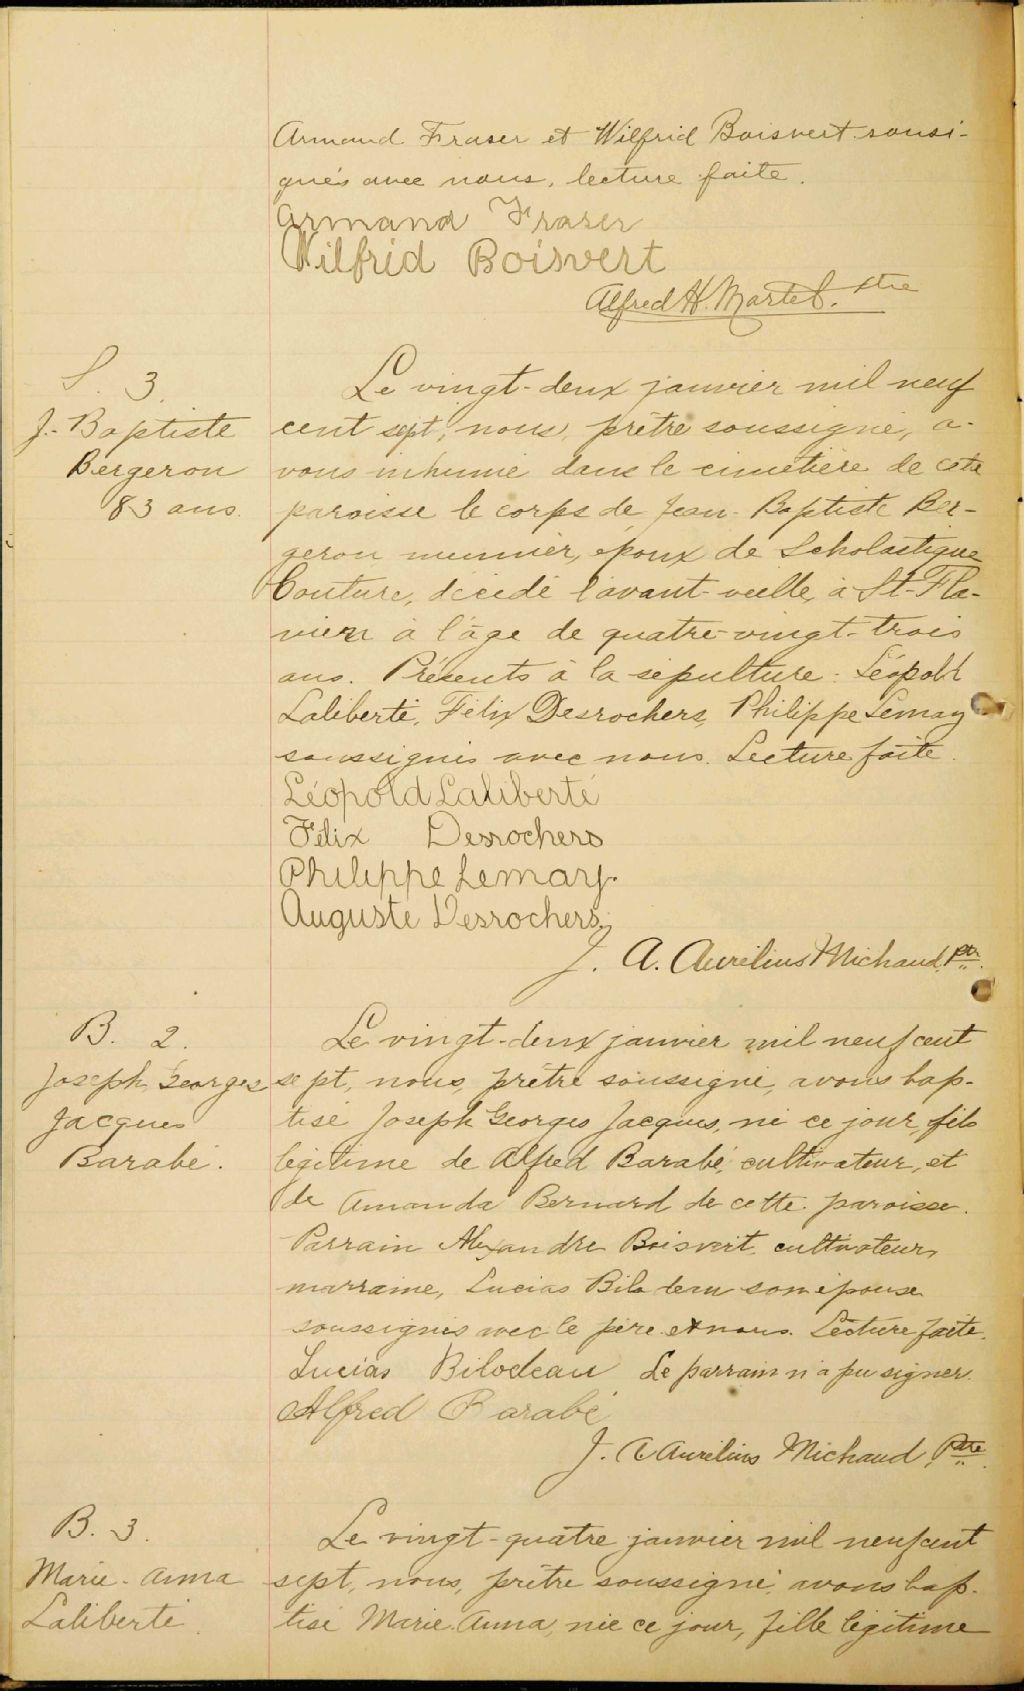 Armand Fraser et Wilfrid Boisvert sousi-
gnés avec nous, lecture faite.
Armand Fraser
Wilfrid Boisvert
Alfred H. Martel. ptre
S. 3.
J.-Baptiste
Bergeron
83 ans.
Le vingt-deux janvier mil neuf
cent sept, nous, prêtre soussigné, a-
vons inhumé dans le cimetière de cette
paroisse le corps de Jean-Baptiste Ber-
geron meunier, époux de Scholastique
Couture, décédé l'avant-veille, à St-Fla-
vien à l'âge de quatre-vingt-trois
ans. Présents à la sépulture: Léopold
Laliberté, Félix Desrochers, Philippe Lemay
soussignés avec nous. Lecture faite.
Léopold Laliberté
Félix Desrochers
Philippe Lemay.
Auguste Desrochers.
J. A. Aurélius Michaud, Ptr.
B. 2.
Joseph, Georges
Jacques
Barabé.
Le vingt-deux janvier mil neuf cent
sept, nous, prêtre soussigné, avons bap-
tisé Joseph Georges Jacques, né ce jour, fils
légitime de Alfred Barabé, cultivateur, et
de Amanda Bernard de cette paroisse.
Parrain Alexandre Boisvert, cultivateur,
marraine, Lucias Bilodeau son épouse
soussignés avec le père et nous. Lecture faite.
Lucias Bilodeau Le parrain n'a pu signer.
Alfred Barabé
J. A Aurélius Michaud, Ptre
B. 3.
Marie-Anna
Laliberté.
Le vingt-quatre janvier mil neuf cent
sept, nous, prêtre soussigné, avons bap-
tisé Marie-Anna, née ce jour, fille légitime